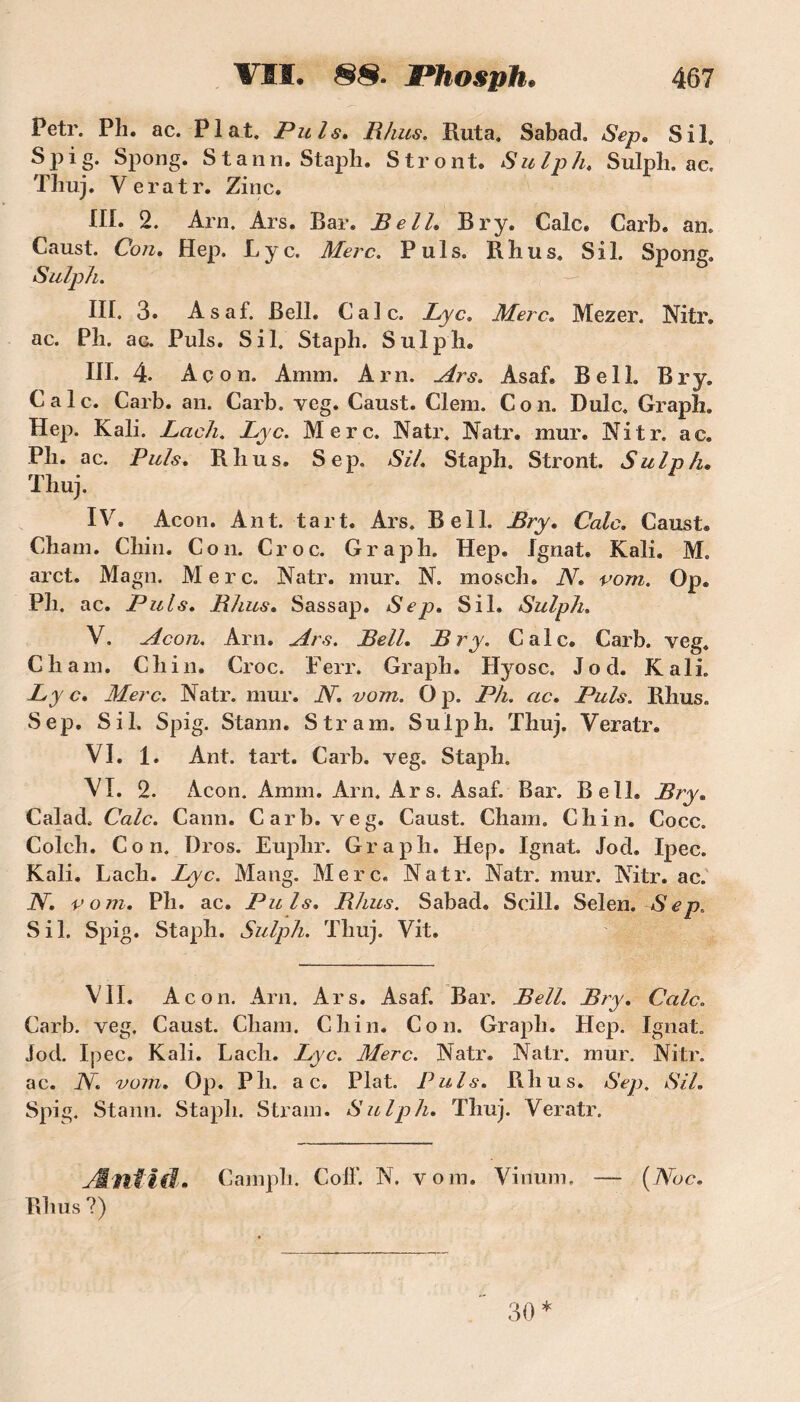 VII. 88. Phosph. 467
Petr. Ph. ac. Plat. Puls. Rhus. Ruta. Sabad. Sep. Sil.
Spig. Spong. Stann. Staph. Stront. Sulph. Sulph. ac.
Thuj. Veratr. Zinc.
III. 2. Arn. Ars. Bar. Bell. Bry. Calc. Carb. an.
Caust. Con. Hep. Lyc. Merc. Puls. Rhus. Sil. Spong.
Sulph.
III. 3. Asaf. Bell. Calc. Lyc. Merc. Mezer. Nitr.
ac. Ph. ac. Puls. Sil. Staph. Sulph.
III. 4. Acon. Amm. Arn. Ars. Asaf. Bell. Bry.
Calc. Carb. an. Carb. veg. Caust. Clem. Con. Dulc. Graph.
Hep. Kali. Lach. Lyc. Merc. Natr. Natr. mur. Nitr. ac.
Ph. ac. Puls. Rhus. Sep. Sil. Staph. Stront. Sulph.
Thuj.
IV. Acon. Ant. tart. Ars. Bell. Bry. Calc. Caust.
Cham. Chin. Con. Croc. Graph. Hep. Ignat. Kali. M.
arct. Magn. Merc. Natr. mur. N. mosch. N. vom. Op.
Ph. ac. Puls. Rhus. Sassap. Sep. Sil. Sulph.
V. Acon. Arn. Ars. Bell. Bry. Calc. Carb. veg.
Cham. Chin. Croc. Ferr. Graph. Hyosc. Jod. Kali.
Lyc. Merc. Natr. mur. N. vom. Op. Ph. ac. Puls. Rhus.
Sep. Sil. Spig. Stann. Stram. Sulph. Thuj. Veratr.
VI. 1. Ant. tart. Carb. veg. Staph.
VI. 2. Acon. Amm. Arn. Ars. Asaf. Bar. Bell. Bry.
Calad. Calc. Cann. Carb. veg. Caust. Cham. Chin. Cocc.
Colch. Con. Dros. Euphr. Graph. Hep. Ignat. Jod. Ipec.
Kali. Lach. Lyc. Mang. Merc. Natr. Natr. mur. Nitr. ac.
N. vom. Ph. ac. Puls. Rhus. Sabad. Scill. Selen. Sep.
Sil. Spig. Staph. Sulph. Thuj. Vit.
VII. Acon. Arn. Ars. Asaf. Bar. Bell. Bry. Calc.
Carb. veg. Caust. Cham. Chin. Con. Graph. Hep. Ignat.
Jod. Ipec. Kali. Lach. Lyc. Merc. Natr. Natr. mur. Nitr.
ac. N. vom. Op. Ph. ac. Plat. Puls. Rhus. Sep. Sil.
Spig. Stann. Staph. Stram. Sulph. Thuj. Veratr.
Antid. Camph. Coff. N. vom. Vinum. — (Noc.
Rhus?)
30*